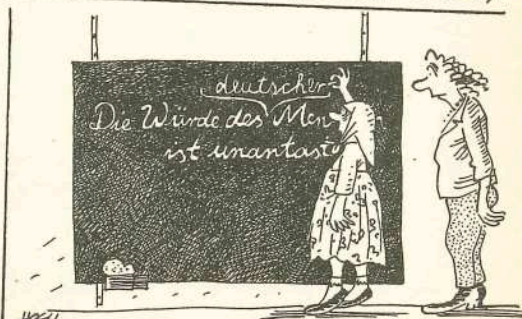 deutscher
Die Würde des Men
ist unantast